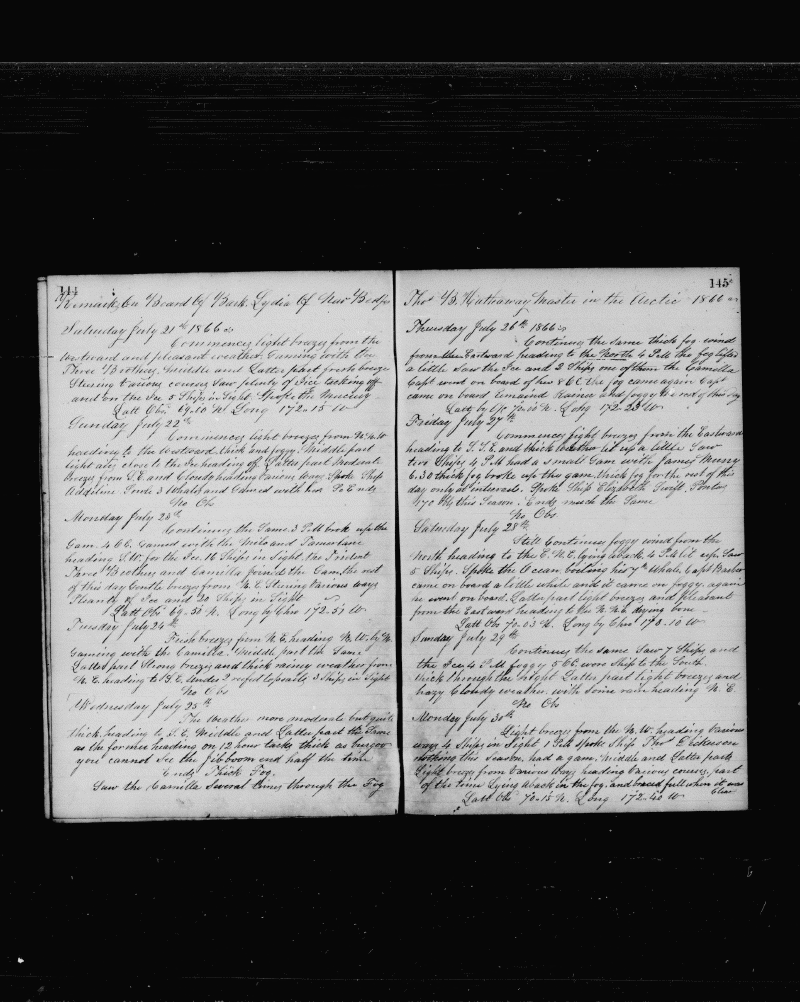 144
Remarks On Board Of Bark Lydia Of New Bedford
Saturday July 21st 1866
Commences light breezes from the
Westward and pleasant weather. Gaming with the
Three Brothers. Middle and Latter part fresh breeze
Stering various courses Saw plenty of Ice tacking off
and on the Ice 5 Ships in Sight. Spoke the
Latt Obs 69-50 N. Long 172-15 W
Sunday July 22nd
Commences light breezes from N.N.W
heading to the Westward. thick and foggy. Middle part
light airs close to the Ice heading off. Latter part Moderate
breezes from S.E. and Cloudy heading various ways. Spoke Ship
Adeline 3 Whales and Gamed with her So Ends
No Obs
Monday July 23rd
Continues the Same. 3 PM broke up the
Gam. 4 O.C. Gamed with the Milo and Tamerlane
heading S.W. for the Ice. 16 Ships in Sight. the President
Three Brothers and Camilla joined the Gam. the rest
of this day Gentle breezes from N.E. Stering Various ways
Pleanty of Ice and 20 Ships in Sight
Latt Obs 69-50 N. Long by Chro 172-51 W
Tuesday July 24th
Fresh breezes from N.E. heading N.W. by N.
Gaming with the Camilla. Middle part the Same
Latter part Strong breezes and thick rainy weather from
N.E. heading to S.E. Under 2 reefed topsails 3 Ships in Sight
No Obs
Wednesday July 25th
The Weather more moderate but quite
thick heading to S.E. Middle and Latter part the Same
as the former heading on 12 hour tacks thick as burgoo
you cannot See the jibboom end half the time
Ends Thick Fog.
Saw the Camilla Several times through the Fog
145
Thos B. Hathaway Master in the Arctic 1866
Thursday July 26th 1866
Continues the same thick fog wind
from the Eastward heading to the North 4 P.M the fog lifted
a little Saw the Ice and 2 Ships one of them the Camilla
Capt went on board of her 8 O.C. the fog came again Capt
came on board remained Rainy and foggy the rest of this Day
Latt by 70-00 N. Long 172-23 W
Friday July 27th
Commences light breezes from the Eastward
heading to S.S.E. and thick weather let up a little Saw
two Ships 4 P.M had a small Gam with James Maury
6.30 thick fog broke up the gam. thick fog for the rest of this
day only at intervals. Spoke Ship Elizabeth Swift Pontus
this Season. Ends much the Same
No Obs
Saturday July 28th
Still Continues foggy wind from the
North heading to the E.N.E. lying aback 4 P.M lit up Saw
5 Ships. Spoke the Ocean boiling his 7th Whale, Capt Barber
came on board a little while and it came on foggy again
he went on board. Latter part light breezes and pleasant
from the Eastward heading to the N.N.E drying bone
Latt Obs 70-03 N. Long by Chro 173-10 W
Sunday July 29th
Continues the same Saw 7 Ships and
the Ice 4 P.M foggy 5 O.C. wore Ship to the South.
thick through the night Latter part light breezes and
hazy Cloudy weather. with Some rain heading N.E.
No Obs
Monday July 30th
Light breezes from the N.W. heading Various
ways 4 Ships in Sight 1 P.M Spoke Ship Thos Dickason
nothing this Season. had a gam. Middle and Latter parts
Light breezes from Various Ways heading Various courses, part
of the time Lying Aback in the fog, and braced full when it was
Clear
Latt Obs 70-15 N. Long 172-40 W